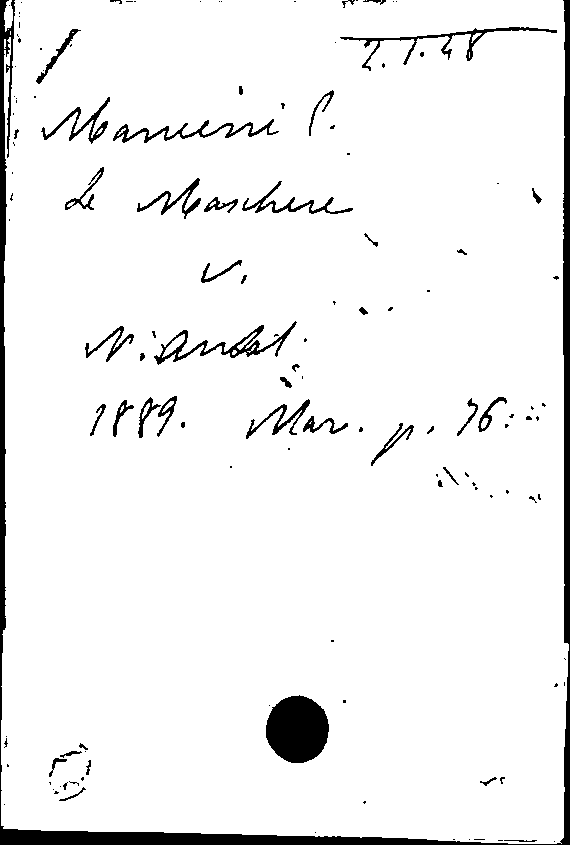 2.1.48
Mancini P.
Le Maschere
v.
N. Antol.
1889. Mar. p. 76.